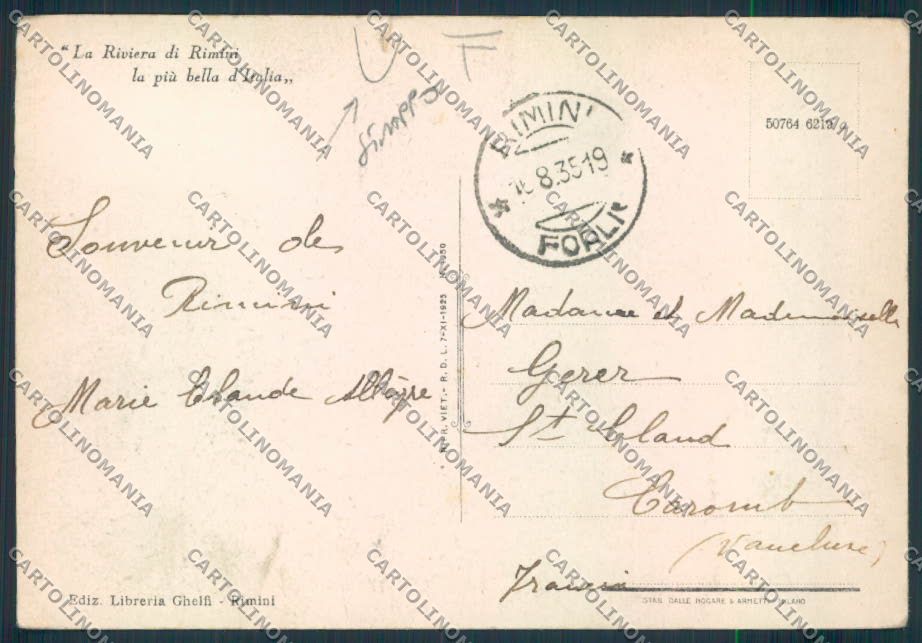 "La Riviera di Rimini
la più bella d'Italia,,
F
gruppo
RIMINI
8.35 19
FORLI'
50764 6219
Souvenir de
Rimini
Marie Claude Allègre
Madame et Mademoiselle
Gerer
St Claud
Caromb
(Vaucluse)
Francia
R. VIET. - R. D. L. 7-XI-1925
Ediz. Libreria Ghelfi - Rimini
STAB. DALLE NOGARE & ARMETTI - MILANO
CARTOLINOMANIA